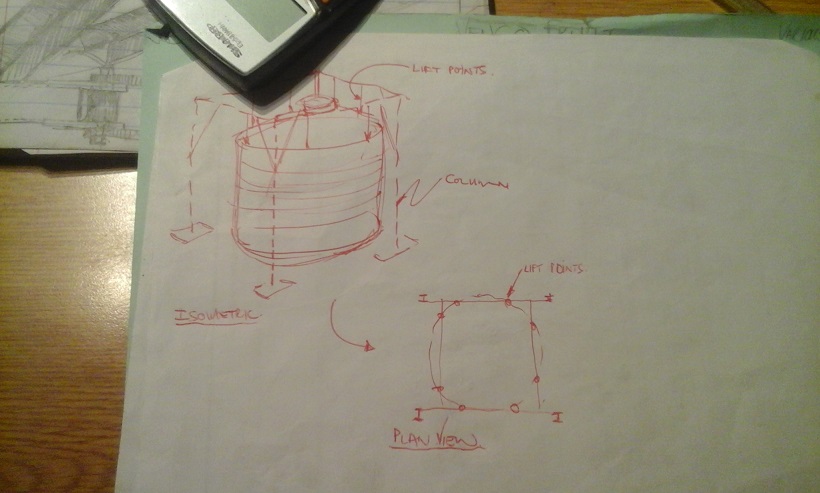 SHARP
LIFT POINTS.
COLUMN
LIFT POINTS.
ISOMETRIC.
I
I
I
I
PLAN VIEW